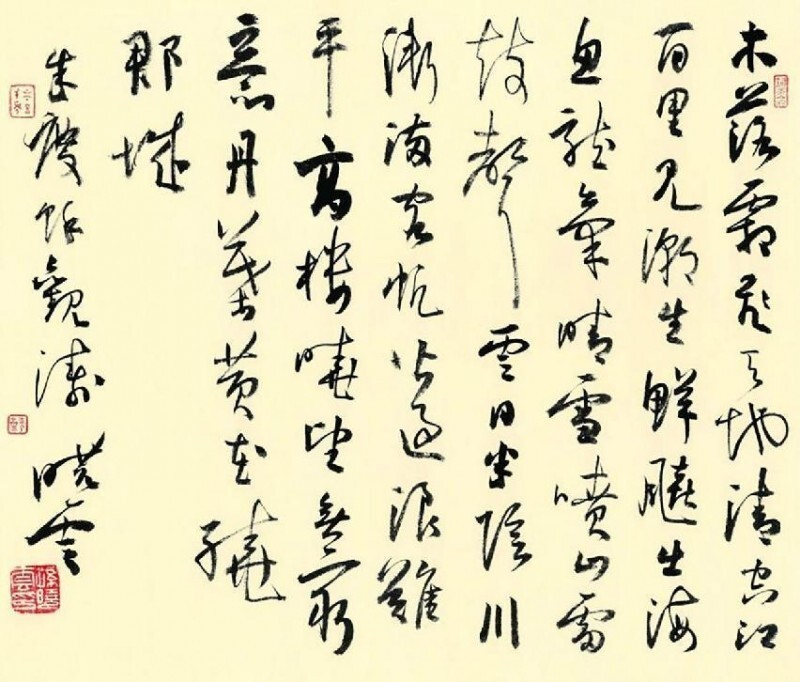 木落霜飛天地清空江
百里見潮生鮮飈出海
魚龍氣晴雪噴山雷
鼓聲雲日半陰川
漸滿客帆皆過浪難
平高樓曉望無窮
意丹葉黄花繞
郡城
朱慶餘觀濤 曉雲